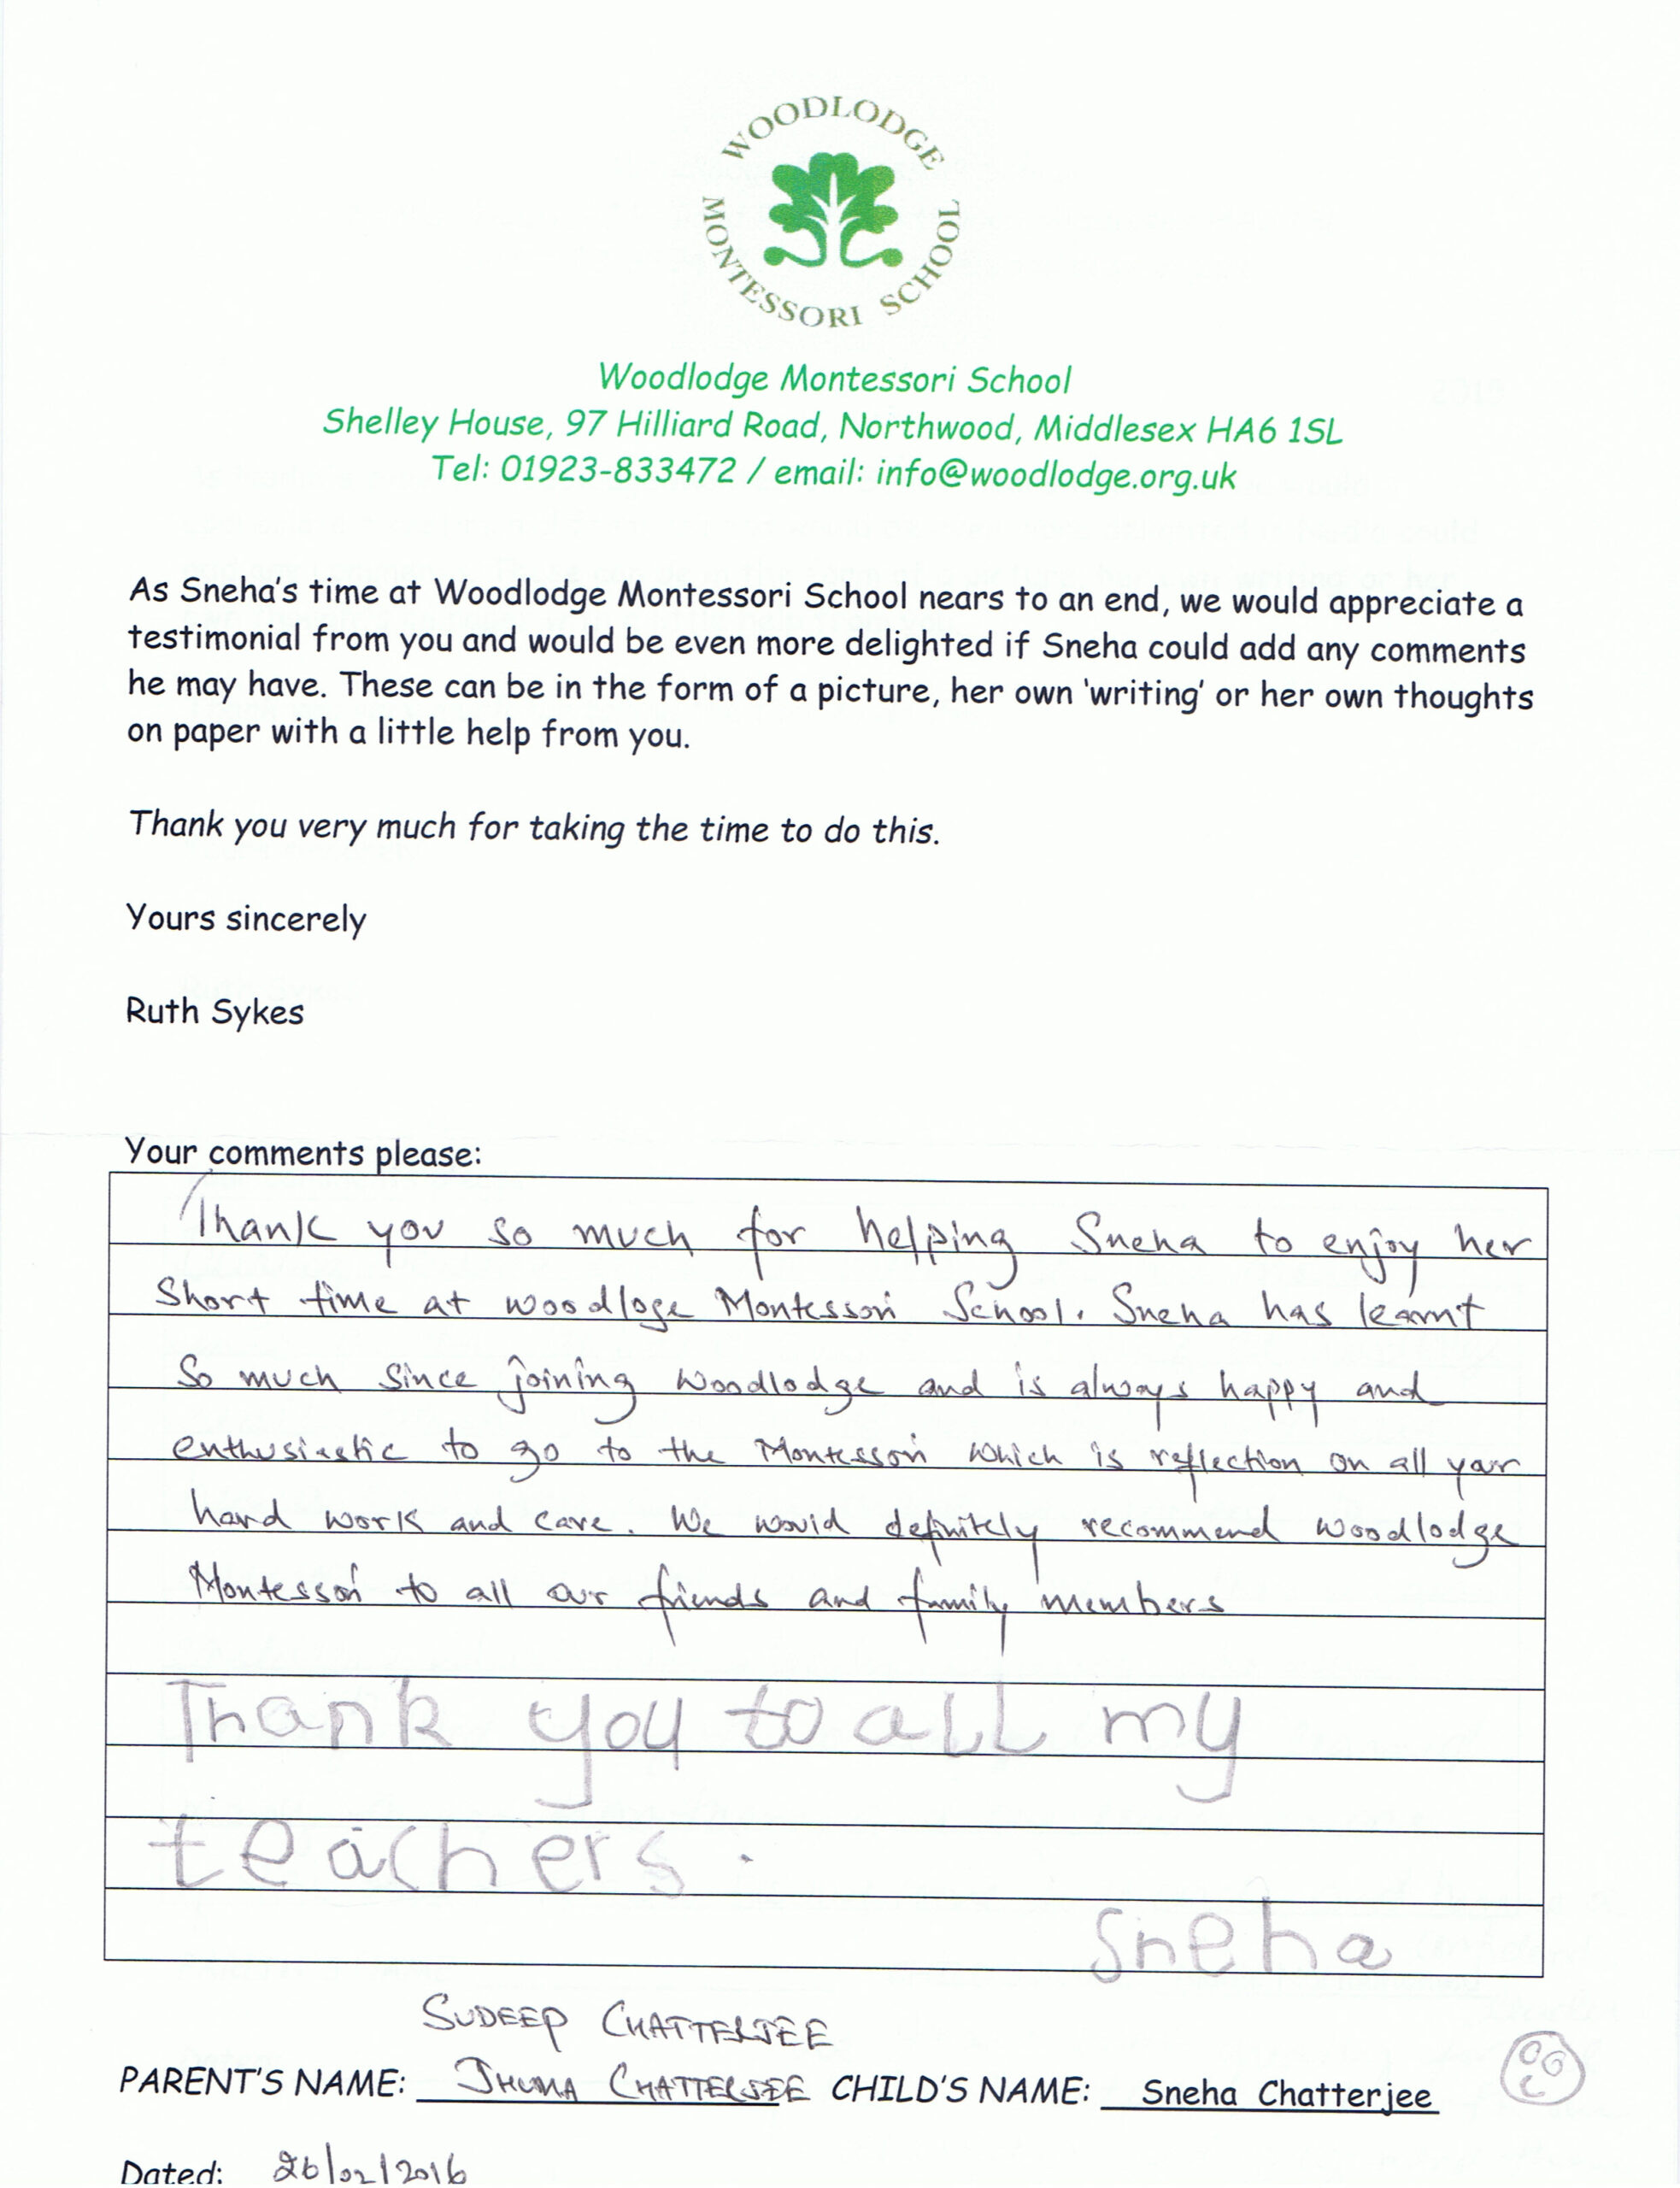 WOODLODGE
MONTESSORI SCHOOL
Woodlodge Montessori School
Shelley House, 97 Hilliard Road, Northwood, Middlesex HA6 1SL
Tel: 01923-833472 / email: info@woodlodge.org.uk
As Sneha's time at Woodlodge Montessori School nears to an end, we would appreciate a
testimonial from you and would be even more delighted if Sneha could add any comments
he may have. These can be in the form of a picture, her own 'writing' or her own thoughts
on paper with a little help from you.
Thank you very much for taking the time to do this.
Yours sincerely
Ruth Sykes
Your comments please:
Thank you so much for helping Sneha to enjoy her
Short time at woodloge Montessori School. Sneha has learnt
So much since joining woodlodge and is always happy and
enthusiastic to go to the Montessori which is reflection on all your
hard work and care. We would definitely recommend woodlodge
Montessori to all our friends and family members
Thank you to all my
teachers.
Sneha
SUDEEP CHATTERJEE
PARENT'S NAME: JHUMA CHATTERJEE CHILD'S NAME: Sneha Chatterjee
Dated: 26/02/2016